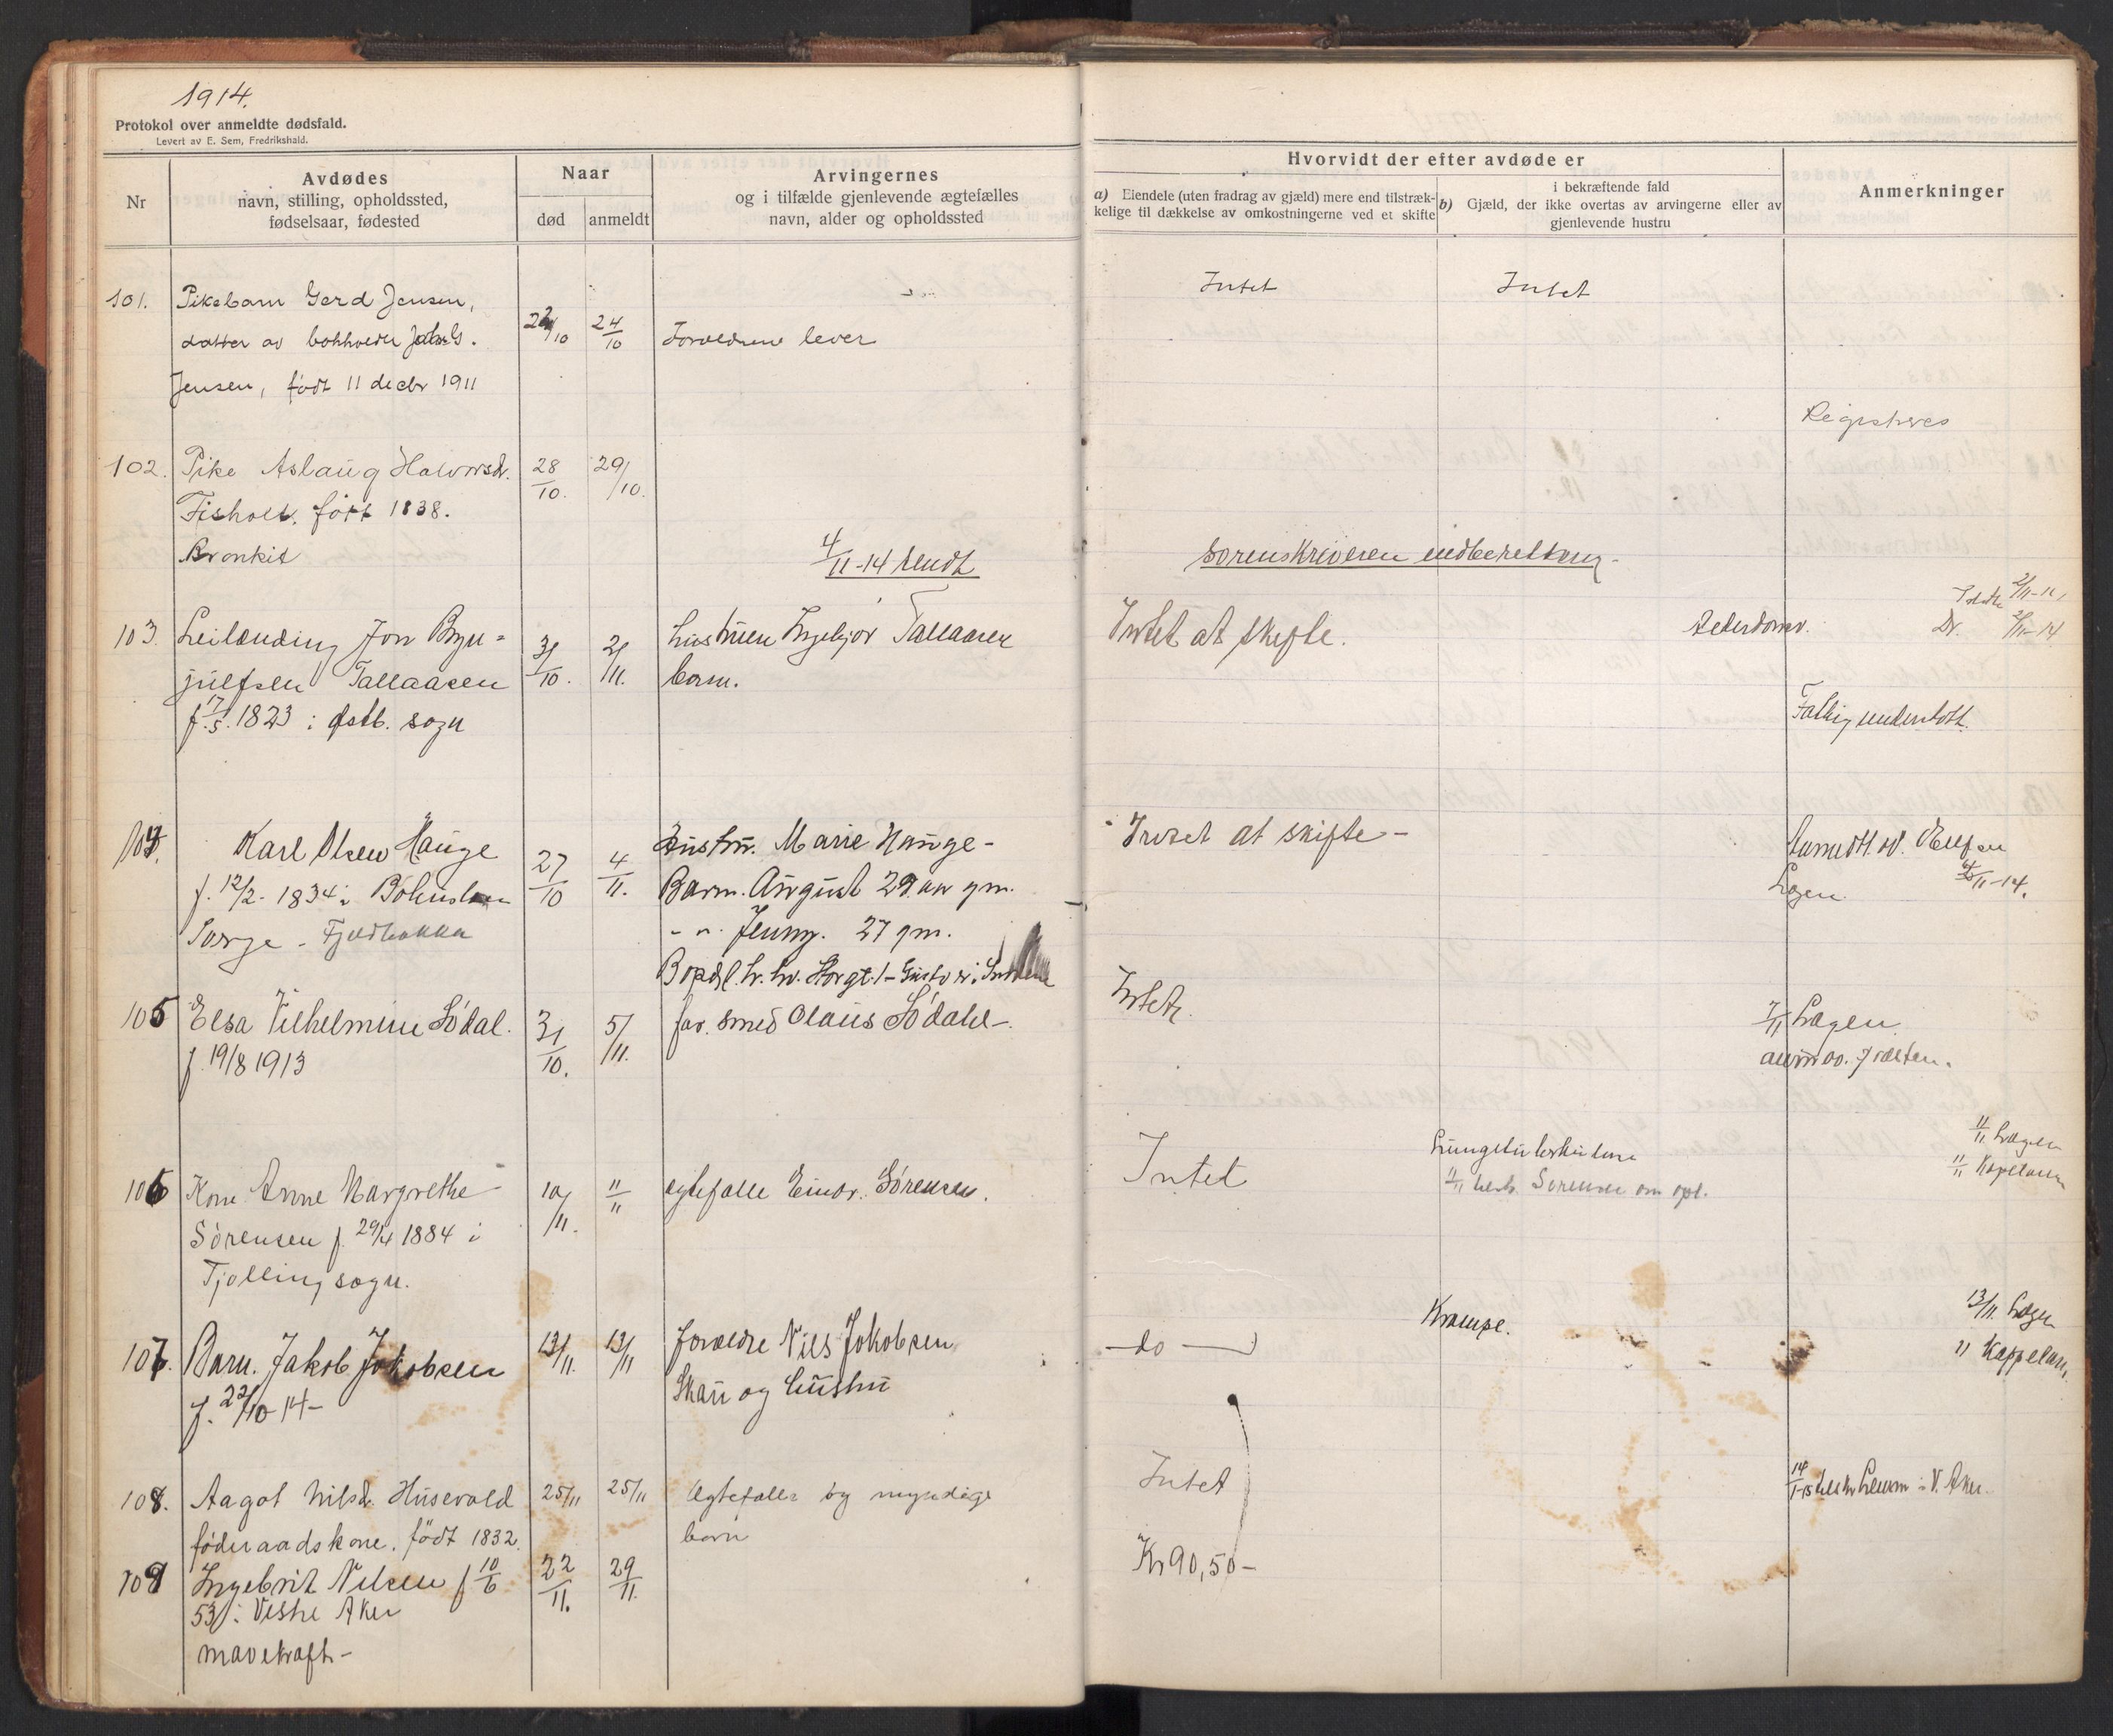 1914.
Protokol over anmeldte dødsfald.
Levert av E. Sem, Fredrikshald.
Nr
Avdødes
navn, stilling, opholdssted,
fødselsaar, fødested
Naar
død
anmeldt
Arvingernes
og i tilfælde gjenlevende ægtefælles
navn, alder og opholdssted
Hvorvidt der efter avdøde er
a) Eiendele (uten fradrag av gjæld) mere end tilstræk-
kelige til dækkelse av omkostningerne ved et skifte
i bekræftende fald
b) Gjæld, der ikke overtas av arvingerne eller av
gjenlevende hustru
Anmerkninger
101. Pikebarn Gerd Jensen,
datter av bokholder
Jensen, født 11 decbr 1911
24/10
Forældrene lever
Intet
Intet
Registreres
102. Pike Aslaug Halvorsd.
Fisholt. født 1838.
Bronkit
28/10. 29/10.
4/11-14 sendt
sorenskriveren indberetning
103. Leilænding Jon Bryn-
julfsen Tallaasen
f. 17/5. 1823 i Østb. sogn
31/10. 2/11.
hustruen Ingebjør Tallaasen
børn.
Intet at skifte.
Alderdomsv.
2/11-14
Fattigunderstøtt.
104. Karl Olsen Hauge
f. 12/2. 1834 i Bohuslæn
27/10 4/11.
Hustru. Marie Hauge-
Barn. August 29 aar gm.
- " - Jenny. 27 gm.
Intet at skifte -
Anmdt. av
Lægen 4/11-14.
105 Elsa Vilhelmine Södal.
f. 19/8 1913
31/10. 5/11.
far. smed Olaus Södahl-.
Intet.
7/11 Lægen
106 Kone Anne Margrethe
Sörensen f. 29/4 1884 i
Tjølling sogn.
10/11. 11/11
egtefælle Einar. Sørensen.
Intet
Lungetuberkulose
11/11 Sørensen om opl.
11/11 Lægen
11/11 Kapelanen
107. Barn. Jakob Jakobsen
f. 22/10 14-
13/11. 13/11
forældre Nils Jakobsen
Skau og hustru
-do-
Krampe.
13/11. Lægen
" Kappelan.
108. Aagot Nilsd. Husevold
føderaadskone. födt 1832.
25/11 25/11
Ægtefælle og myndige
børn
Intet
14/1-15 V. Aker.
109 Ingebrit Nilsen f 10/6
53 i Vestre Aker
mavekræft-
22/11. 29/11.
Kr 90,50-